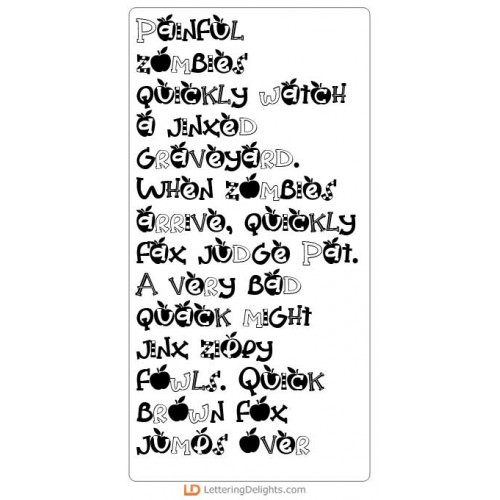 Painful
zombies
quickly watch
a jinxed
graveyard.
When zombies
arrive, quickly
fax judge Pat.
A very bad
quack might
jinx zippy
fowls. Quick
brown fox
jumps over
LD LetteringDelights.com